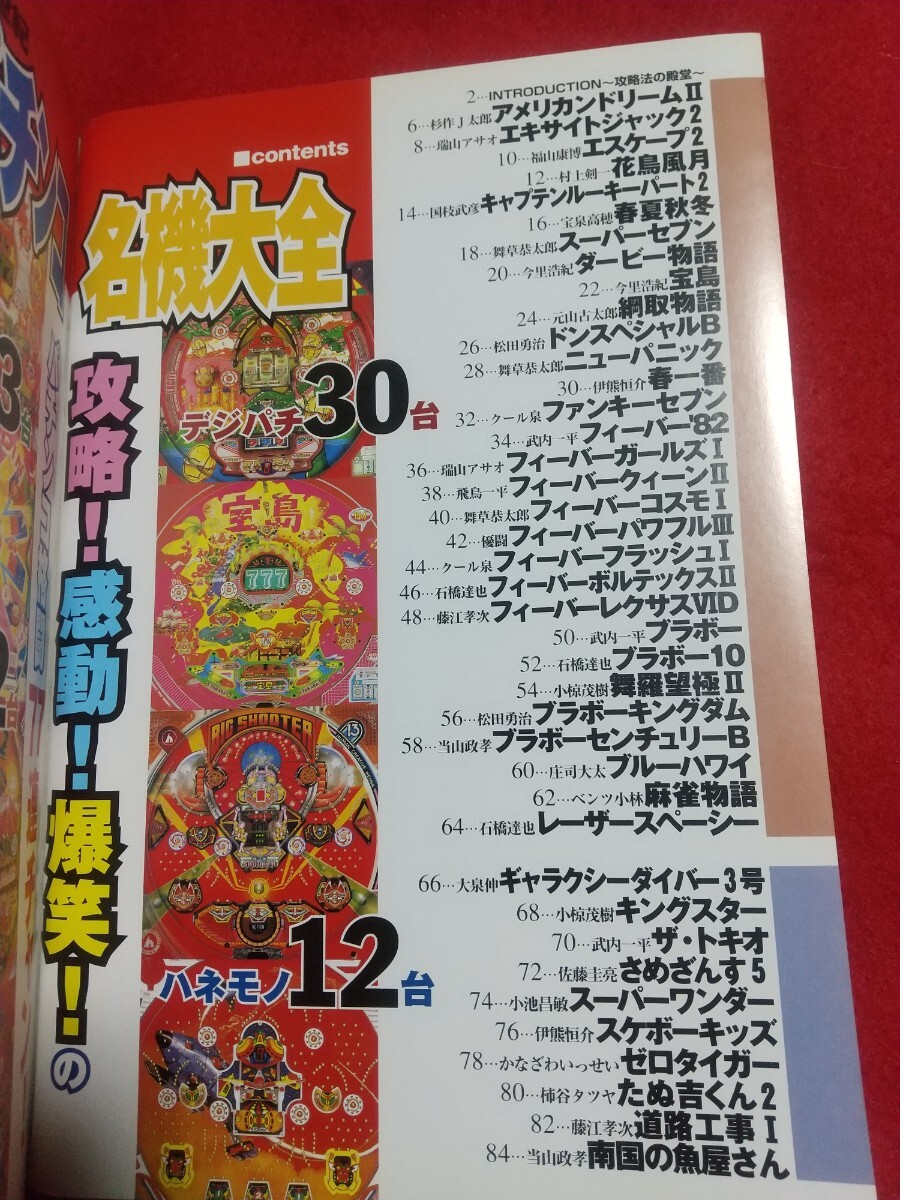 ■contents
名機大全
攻略！感動！爆笑！の
デジパチ30台
宝島
777
BIG SHOOTER
13
ハネモノ12台
2…INTRODUCTION～攻略法の殿堂～
6…杉作J太郎アメリカンドリームⅡ
8…瑞山アサオエキサイトジャック2
10…福山康博エスケープ2
12…村上剣一花鳥風月
14…国枝武彦キャプテンルーキーパート2
16…宝泉高穂春夏秋冬
18…舞草恭太郎スーパーセブン
20…今里浩紀ダービー物語
22…今里浩紀宝島
24…元山古太郎綱取物語
26…松田勇治ドンスペシャルB
28…舞草恭太郎ニューパニック
30…伊熊恒介春一番
32…クール泉ファンキーセブン
34…武内一平フィーバー'82
36…瑞山アサオフィーバーガールズⅠ
38…飛鳥一平フィーバークィーンⅡ
40…舞草恭太郎フィーバーコスモⅠ
42…優闘フィーバーパワフルⅢ
44…クール泉フィーバーフラッシュⅠ
46…石橋達也フィーバーボルテックスⅡ
48…藤江孝次フィーバーレクサスⅥD
50…武内一平ブラボー
52…石橋達也ブラボー10
54…小椋茂樹舞羅望極Ⅱ
56…松田勇治ブラボーキングダム
58…当山政孝ブラボーセンチュリーB
60…庄司大太ブルーハワイ
62…ベンツ小林麻雀物語
64…石橋達也レーザースペーシー
66…大泉伸ギャラクシーダイバー3号
68…小椋茂樹キングスター
70…武内一平ザ・トキオ
72…佐藤圭亮さめざんす5
74…小池昌敏スーパーワンダー
76…伊熊恒介スケボーキッズ
78…かなざわいっせいゼロタイガー
80…柿谷タツヤたぬ吉くん2
82…藤江孝次道路工事Ⅰ
84…当山政孝南国の魚屋さん